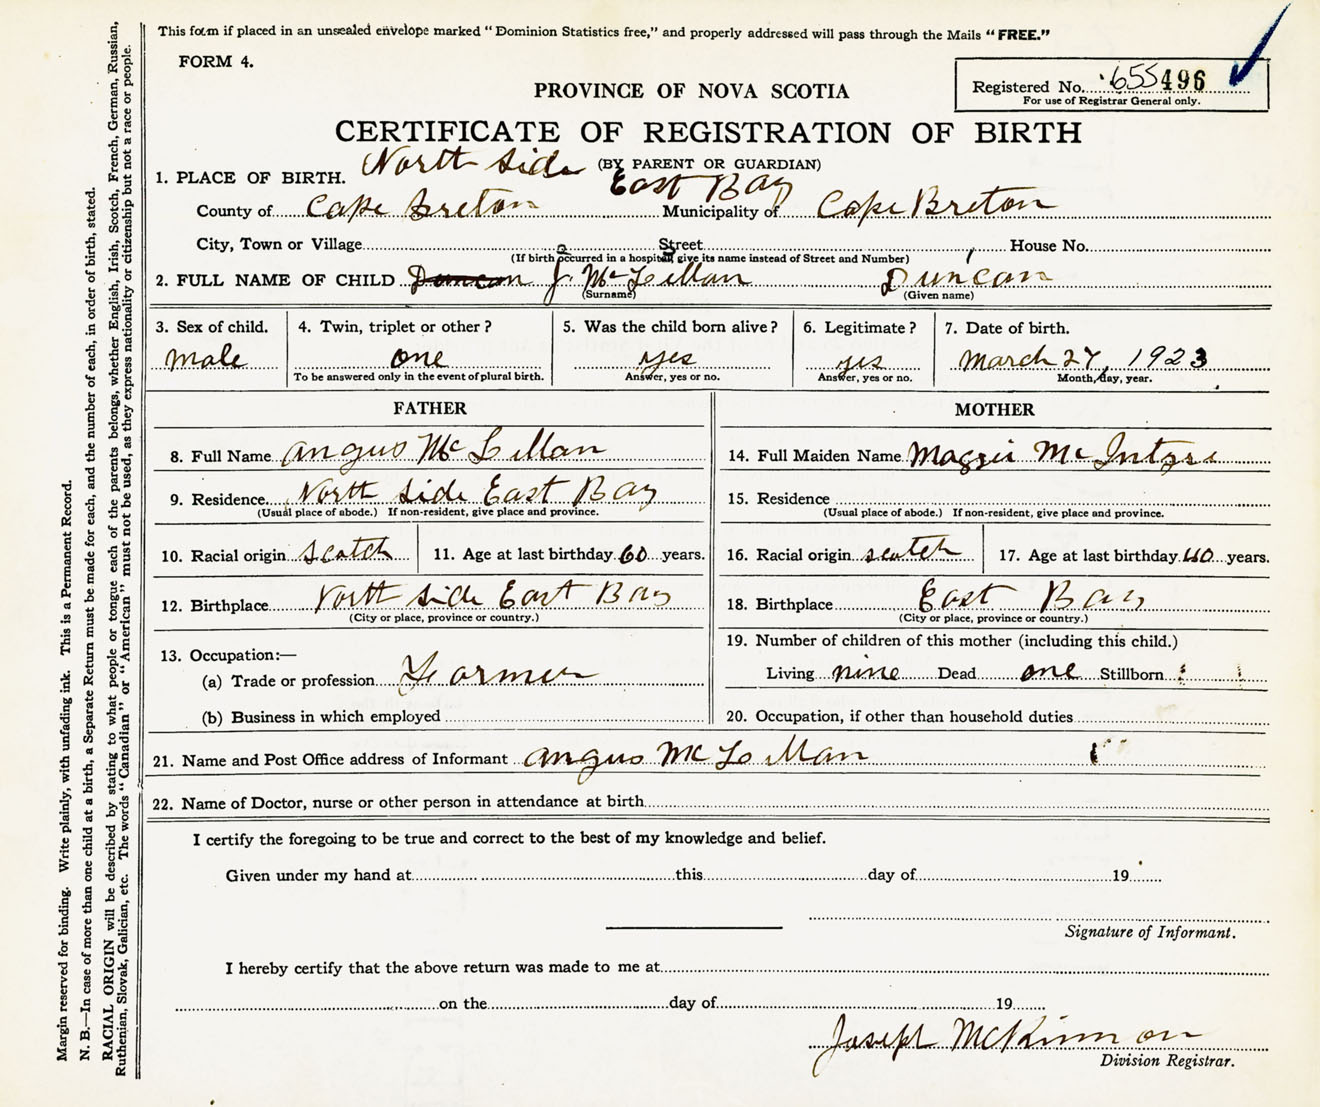 This form if placed in an unsealed envelope marked "Dominion Statistics free," and properly addressed will pass through the Mails "FREE."
FORM 4.
Registered No. 655496
For use of Registrar General only.
PROVINCE OF NOVA SCOTIA
CERTIFICATE OF REGISTRATION OF BIRTH
(BY PARENT OR GUARDIAN)
1. PLACE OF BIRTH. North Side East Bay
County of Cape Breton Municipality of Cape Breton
City, Town or Village Street House No.
(If birth occurred in a hospital give its name instead of Street and Number)
2. FULL NAME OF CHILD Duncan J. McLellan Duncan
(Surname) (Given name)
3. Sex of child. 4. Twin, triplet or other? 5. Was the child born alive? 6. Legitimate? 7. Date of birth.
male one yes yes March 27, 1923
To be answered only in the event of plural birth. Answer, yes or no. Answer, yes or no. Month, day, year.
FATHER MOTHER
8. Full Name Angus McLellan 14. Full Maiden Name Maggie McIntyre
9. Residence North Side East Bay 15. Residence
(Usual place of abode.) If non-resident, give place and province. (Usual place of abode.) If non-resident, give place and province.
10. Racial origin Scotch 11. Age at last birthday 60 years. 16. Racial origin scotch 17. Age at last birthday 40 years.
12. Birthplace North Side East Bay 18. Birthplace East Bay
(City or place, province or country.) (City or place, province or country.)
13. Occupation:— 19. Number of children of this mother (including this child.)
(a) Trade or profession Farmer Living nine Dead one Stillborn
(b) Business in which employed 20. Occupation, if other than household duties
21. Name and Post Office address of Informant Angus McLellan
22. Name of Doctor, nurse or other person in attendance at birth
I certify the foregoing to be true and correct to the best of my knowledge and belief.
Given under my hand at this day of 19
Signature of Informant.
I hereby certify that the above return was made to me at
on the day of 19
Joseph McKinnon
Division Registrar.
Margin reserved for binding. Write plainly, with unfading ink. This is a Permanent Record.
N. B.—In case of more than one child at a birth, a Separate Return must be made for each, and the number of each, in order of birth, stated.
RACIAL ORIGIN will be described by stating to what people or tongue each of the parents belongs, whether English, Irish, Scotch, French, German, Russian,
Ruthenian, Slovak, Galician, etc. The words "Canadian" or "American" must not be used, as they express nationality or citizenship but not a race or people.